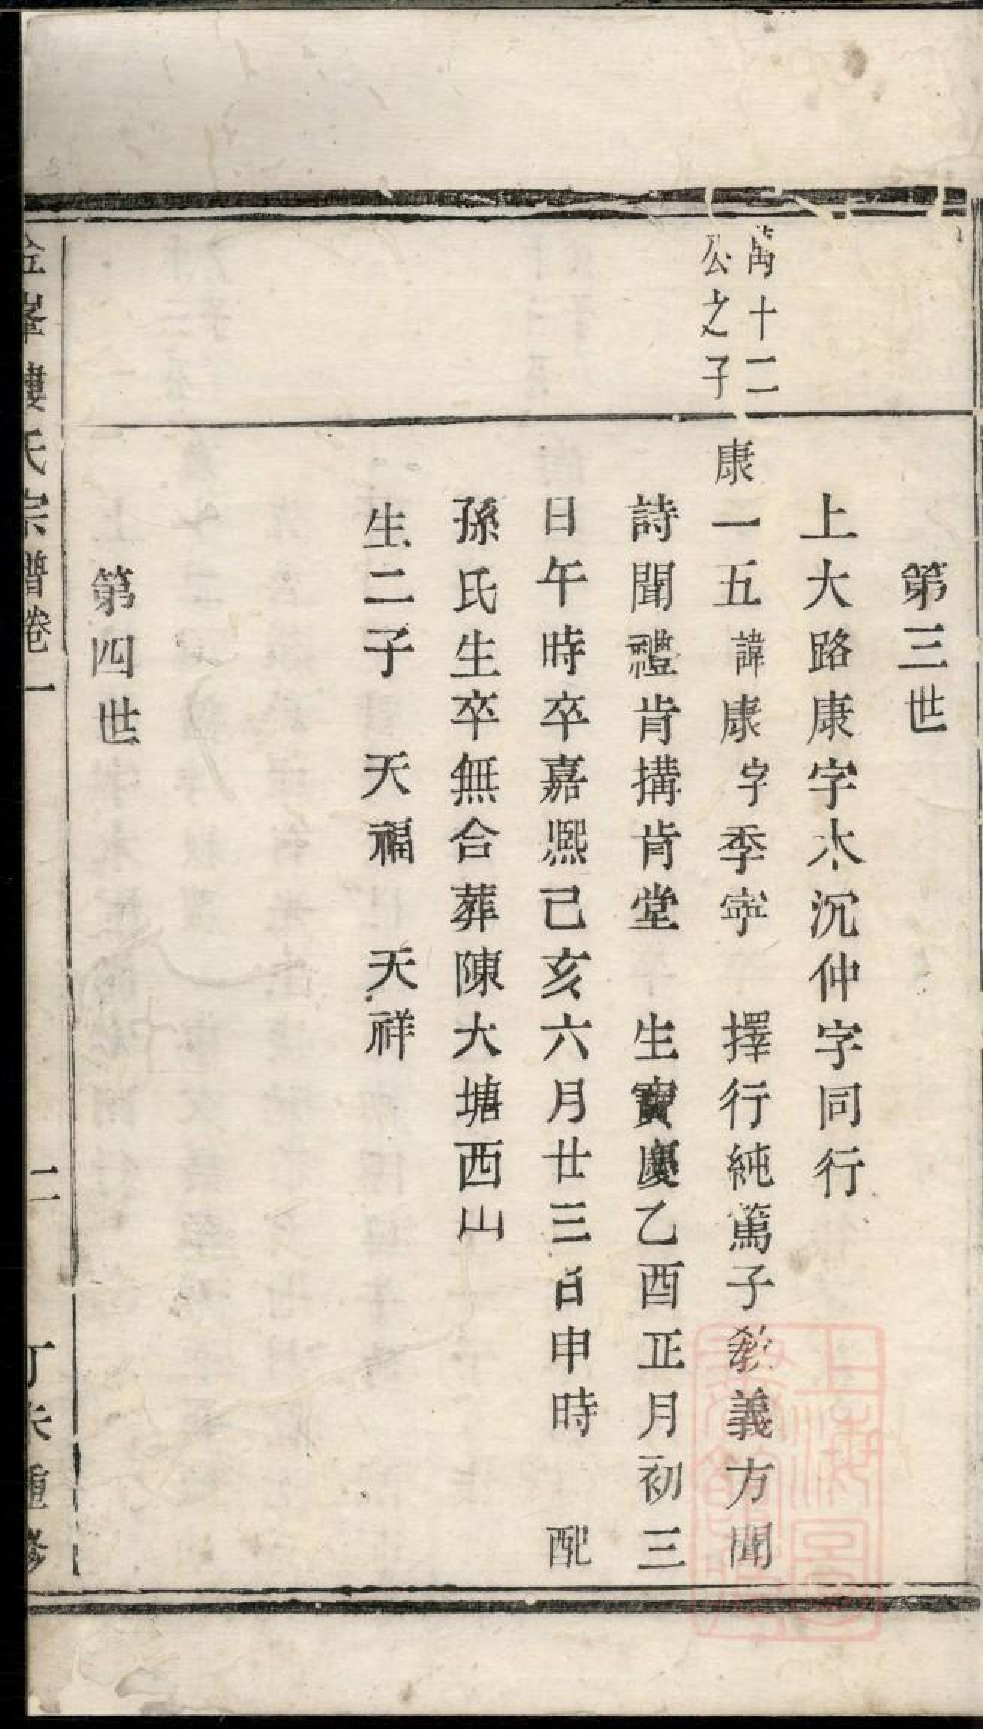 第三世
上大路康字水沉仲字同行
萬十二
公之子
康一五諱康字季寧　擇行純篤子教義方聞
詩聞禮肯搆肯堂　生寶慶乙酉正月初三
日午時卒嘉熙己亥六月廿三日申時　配
孫氏生卒無合葬陳大塘西山
生二子　天福　天祥
第四世
峯樓氏宗譜卷一　二　丁未重修
上海圖